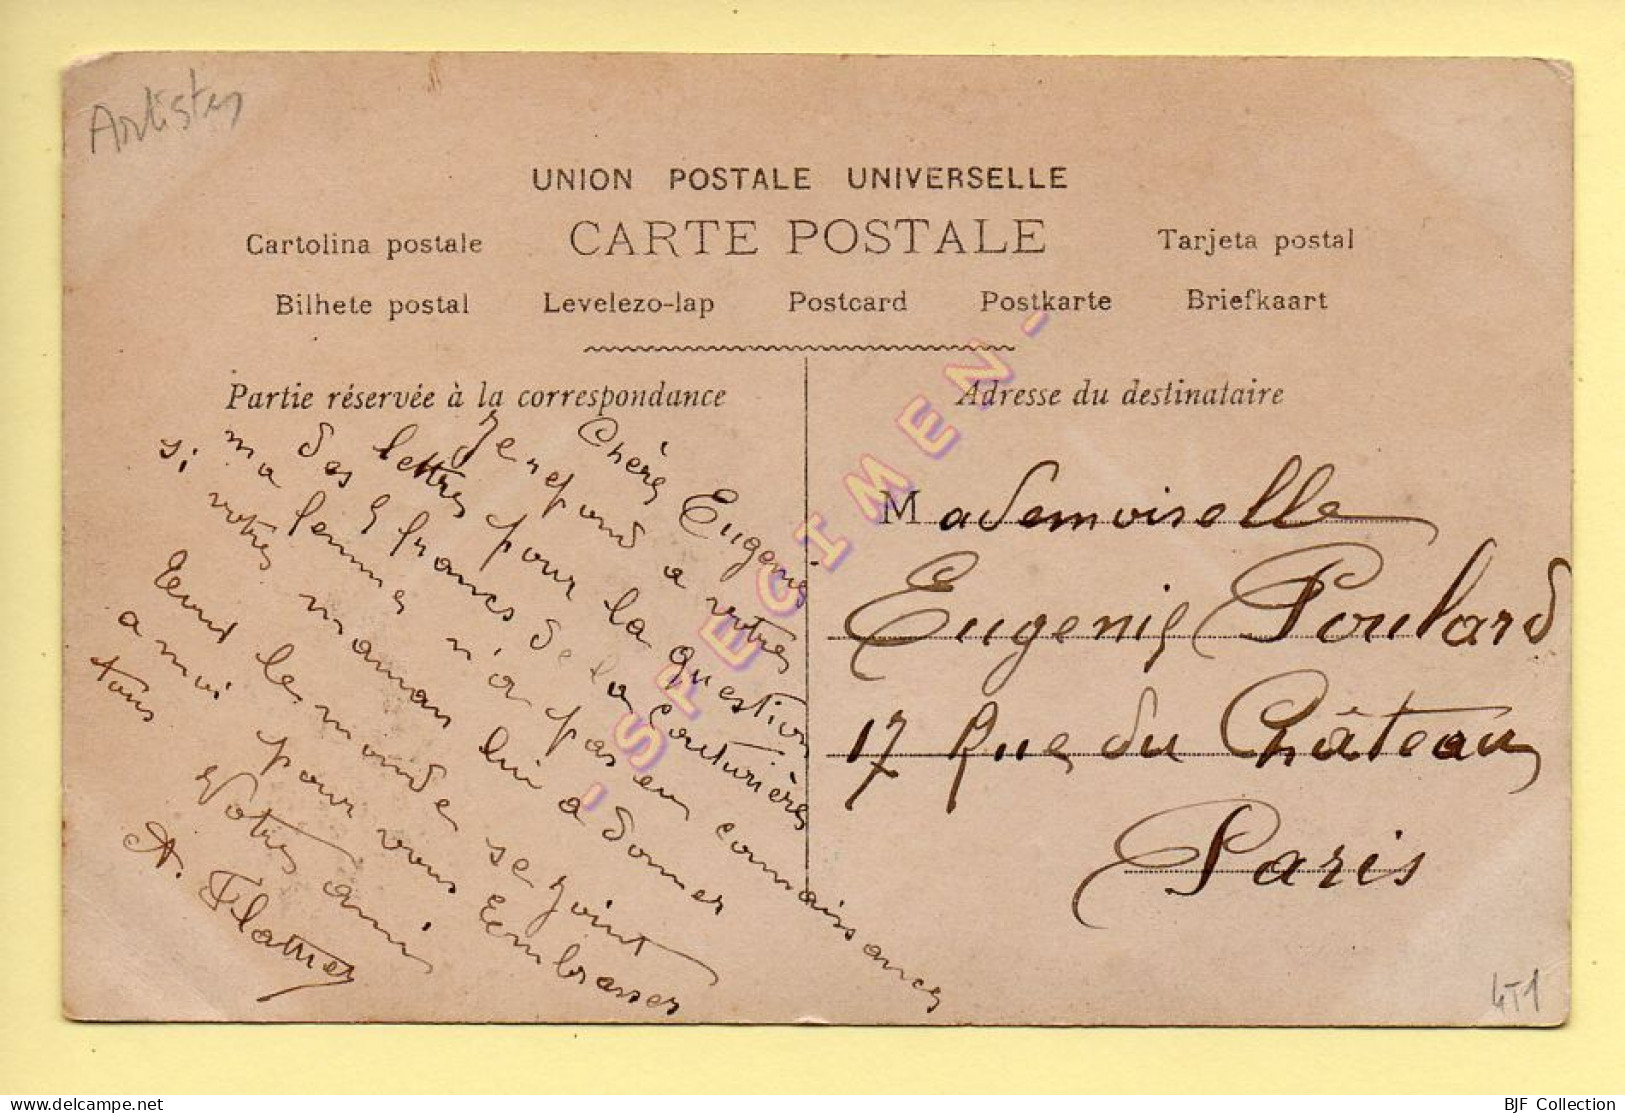 Artistes
UNION POSTALE UNIVERSELLE
Cartolina postale CARTE POSTALE Tarjeta postal
Bilhete postal Levelezo-lap Postcard Postkarte Briefkaart
Partie réservée à la correspondance
Chère Eugenie
Je repond a votres
lettres pour la question
des 4 francs de la Couturières
ma femmes n'a pas eu connaissances
si votres maman lui a donner
tout le monde se joint
a moi pour vous embrasser
tous
Votres ami
A. Flattres
Adresse du destinataire
Mademoiselle
Eugenie Poulard
17 Rue du Château
Paris
- SPECIMEN -
4T1
BJF Collection
www.delcampe.net